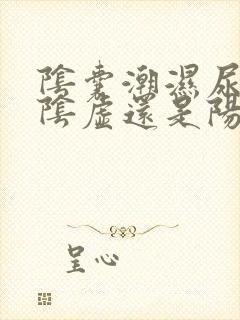 陰囊潮濕尿
陰虛還是陽
呈心